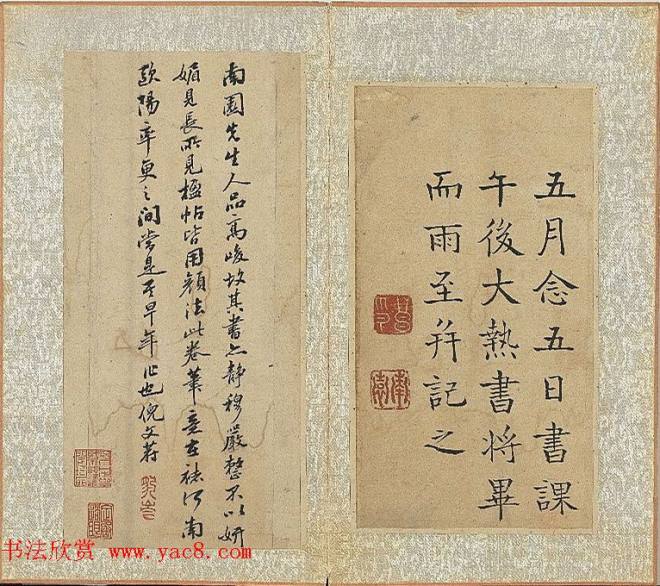 五月念五日書課
午後大熱書将畢
而雨至并記之
南園先生人品高峻故其書亦静穆嚴整不以妍
媚見長所見楹帖皆用顔法此卷筆意在褚河南
歐陽率更之間當是其早年作也倪文蔚
书法欣赏 www.yac8.com